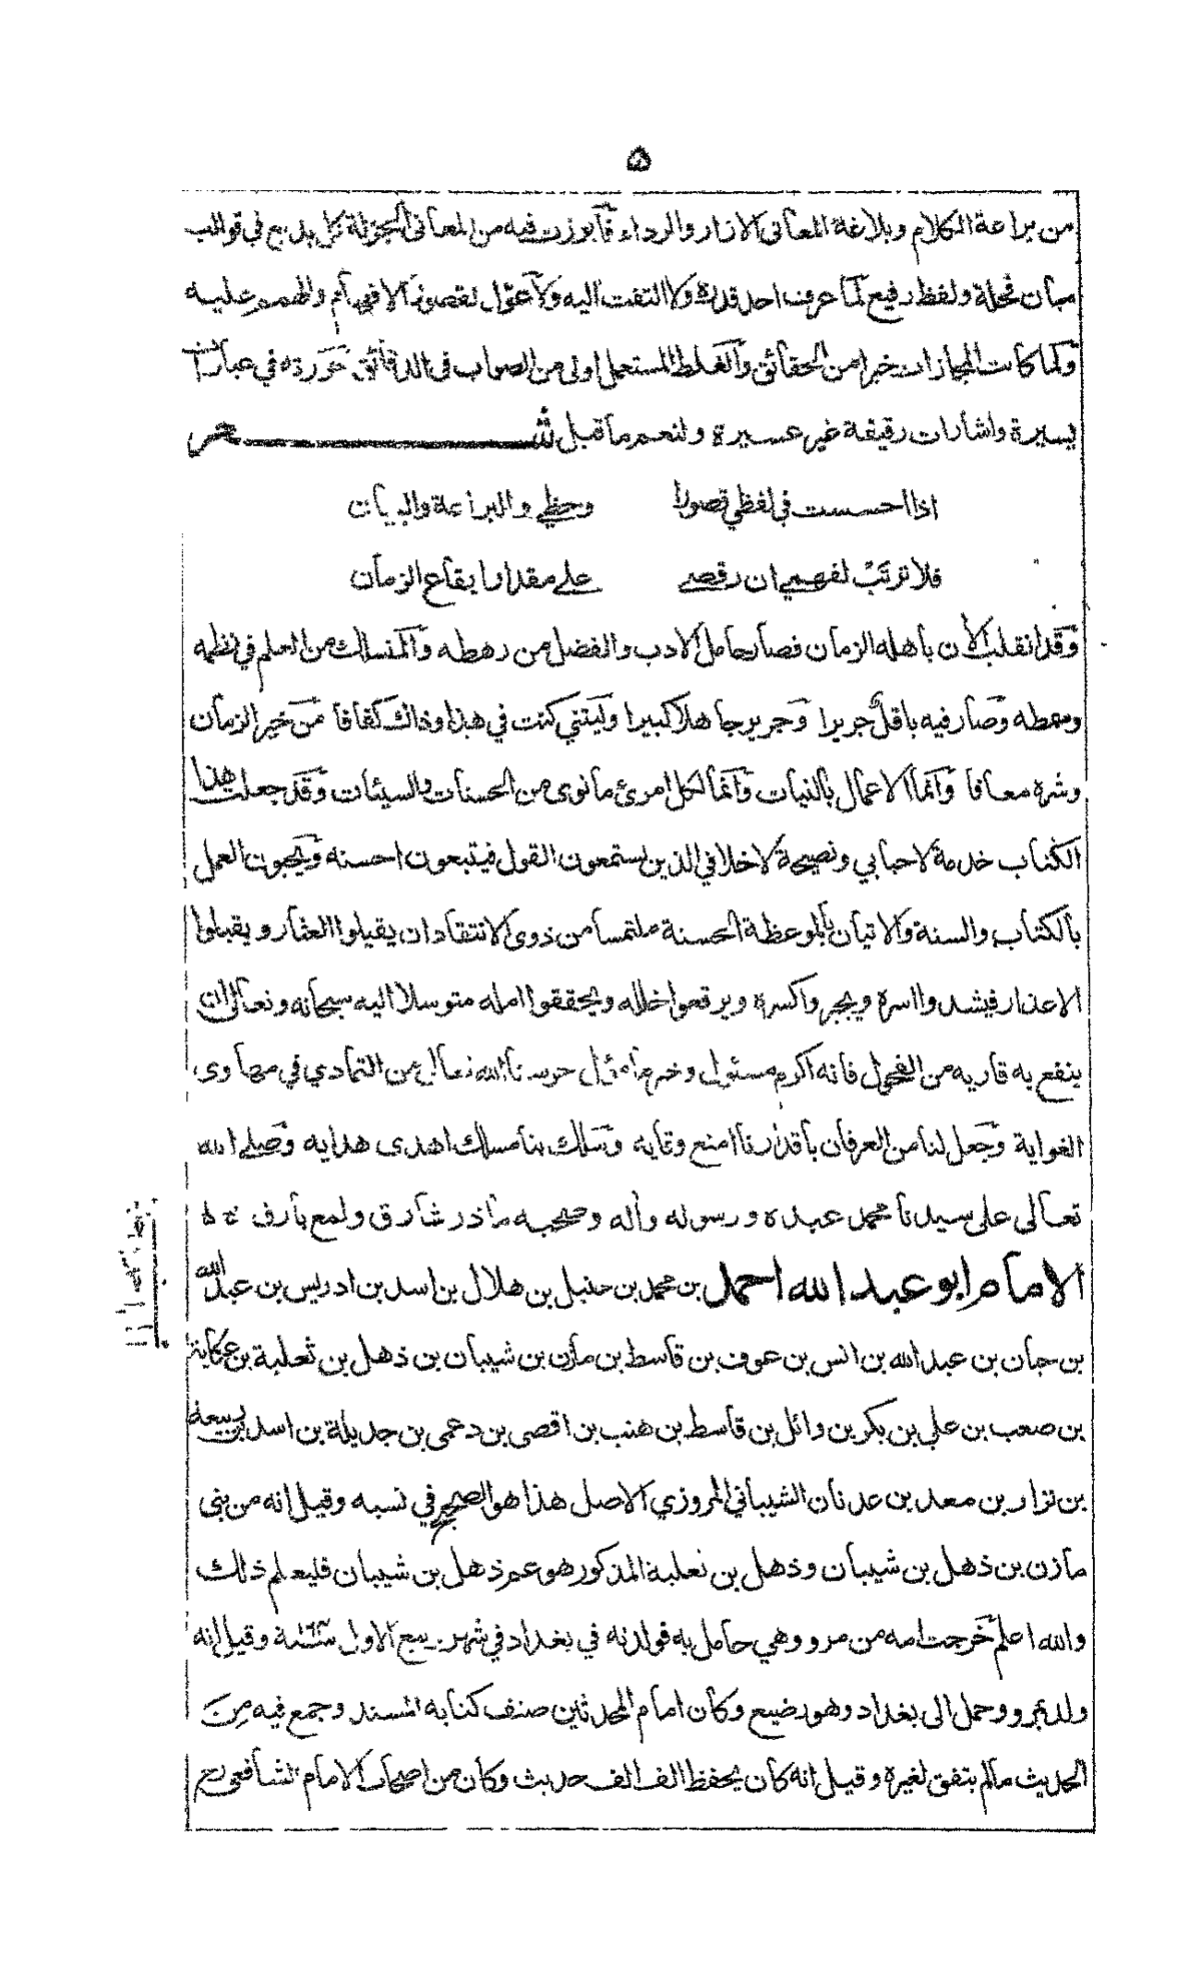 ۵
من براعة الكلام وبلاغة المعاني الازار والرداء فآبرزت فيه من المعاني الجزلة كل بديع في قوالب
مبان فحلة ولفظ رفيع لما عرف احد قدره ولا التفت اليه ولا عوّل لقصور الافهام والهمم عليه
ولما كانت المجازات خيرا من الحقائق والغلط المستعمل اولى من الصواب في الدقائق حررته في عبارات
يسيرة واشارات رقيقة غير عسيرة ولنعم ما قيل شعر
اذا احسست في لفظي قصورا وحظي والبراعة والبيان
فلا ترتب لفهمي ان رقصي على مقدار ايقاع الزمان
وقد انقلب الآن باهله الزمان فصار حامل الادب والفضل من رهطه والمنسالك من العلم في نظمه
وسمطه وصار فيه باقل جريرا وجرير جاهلا كبيرا وليتني كنت في هذا وذاك كفافا من خير الزمان
وشره معافا وانما الاعمال بالنيات وانما لكل امرئ ما نوى من الحسنات والسيئات وقد جعلت هذا
الكتاب خدمة لاحبابي ونصيحة لاخلافي الذين يستمعون القول فيتبعون احسنه ويحبون العمل
بالكتاب والسنة والاتيان بالموعظة الحسنة ملتمسا من ذوى الانتقاد ان يقيلوا العثار ويقبلوا
الاعذار فيشدوا اسره ويجبروا كسره ويرقعوا خلله ويحققوا امله متوسلا اليه سبحانه وتعالى ان
ينفع به قاريه من الفحول فانه اكرم مسئول وخير مأمول حرسنا الله تعالى عن التمادي في مهاوى
الغواية وجعل لنا من العرفان باقدارنا امنع وقاية وسلك بنا مسالك اهدى هداية وصلى الله
تعالى على سيدنا محمد عبده ورسوله وآله وصحبه ما ذر شارق ولمع بارق
الامام ابو عبد الله احمد بن محمد بن حنبل بن هلال بن اسد بن ادريس بن عبد الله
بن حيان بن عبد الله بن انس بن عوف بن قاسط بن مازن بن شيبان بن ذهل بن ثعلبة بن عكابة
بن صعب بن علي بن بكر بن وائل بن قاسط بن هنب بن اقصى بن دعمى بن جديلة بن اسد بن ربيعة
بن نزار بن معد بن عدنان الشيباني المروزي الاصل هذا هو الصحيح في نسبه وقيل انه من بنى
مازن بن ذهل بن شيبان وذهل بن ثعلبة المذكور هو عم ذهل بن شيبان فليعلم ذلك
والله اعلم خرجت امه من مرو وهي حامل به فولدته في بغداد في شهر ربيع الاول سنة وقيل انه
ولد بمرو وحمل الى بغداد وهو رضيع وكان امام المحدثين صنف كتابه المسند وجمع فيه من
الحديث مالم يتفق لغيره وقيل انه كان يحفظ الف الف حديث وكان من اصحاب الامام الشافعى رح